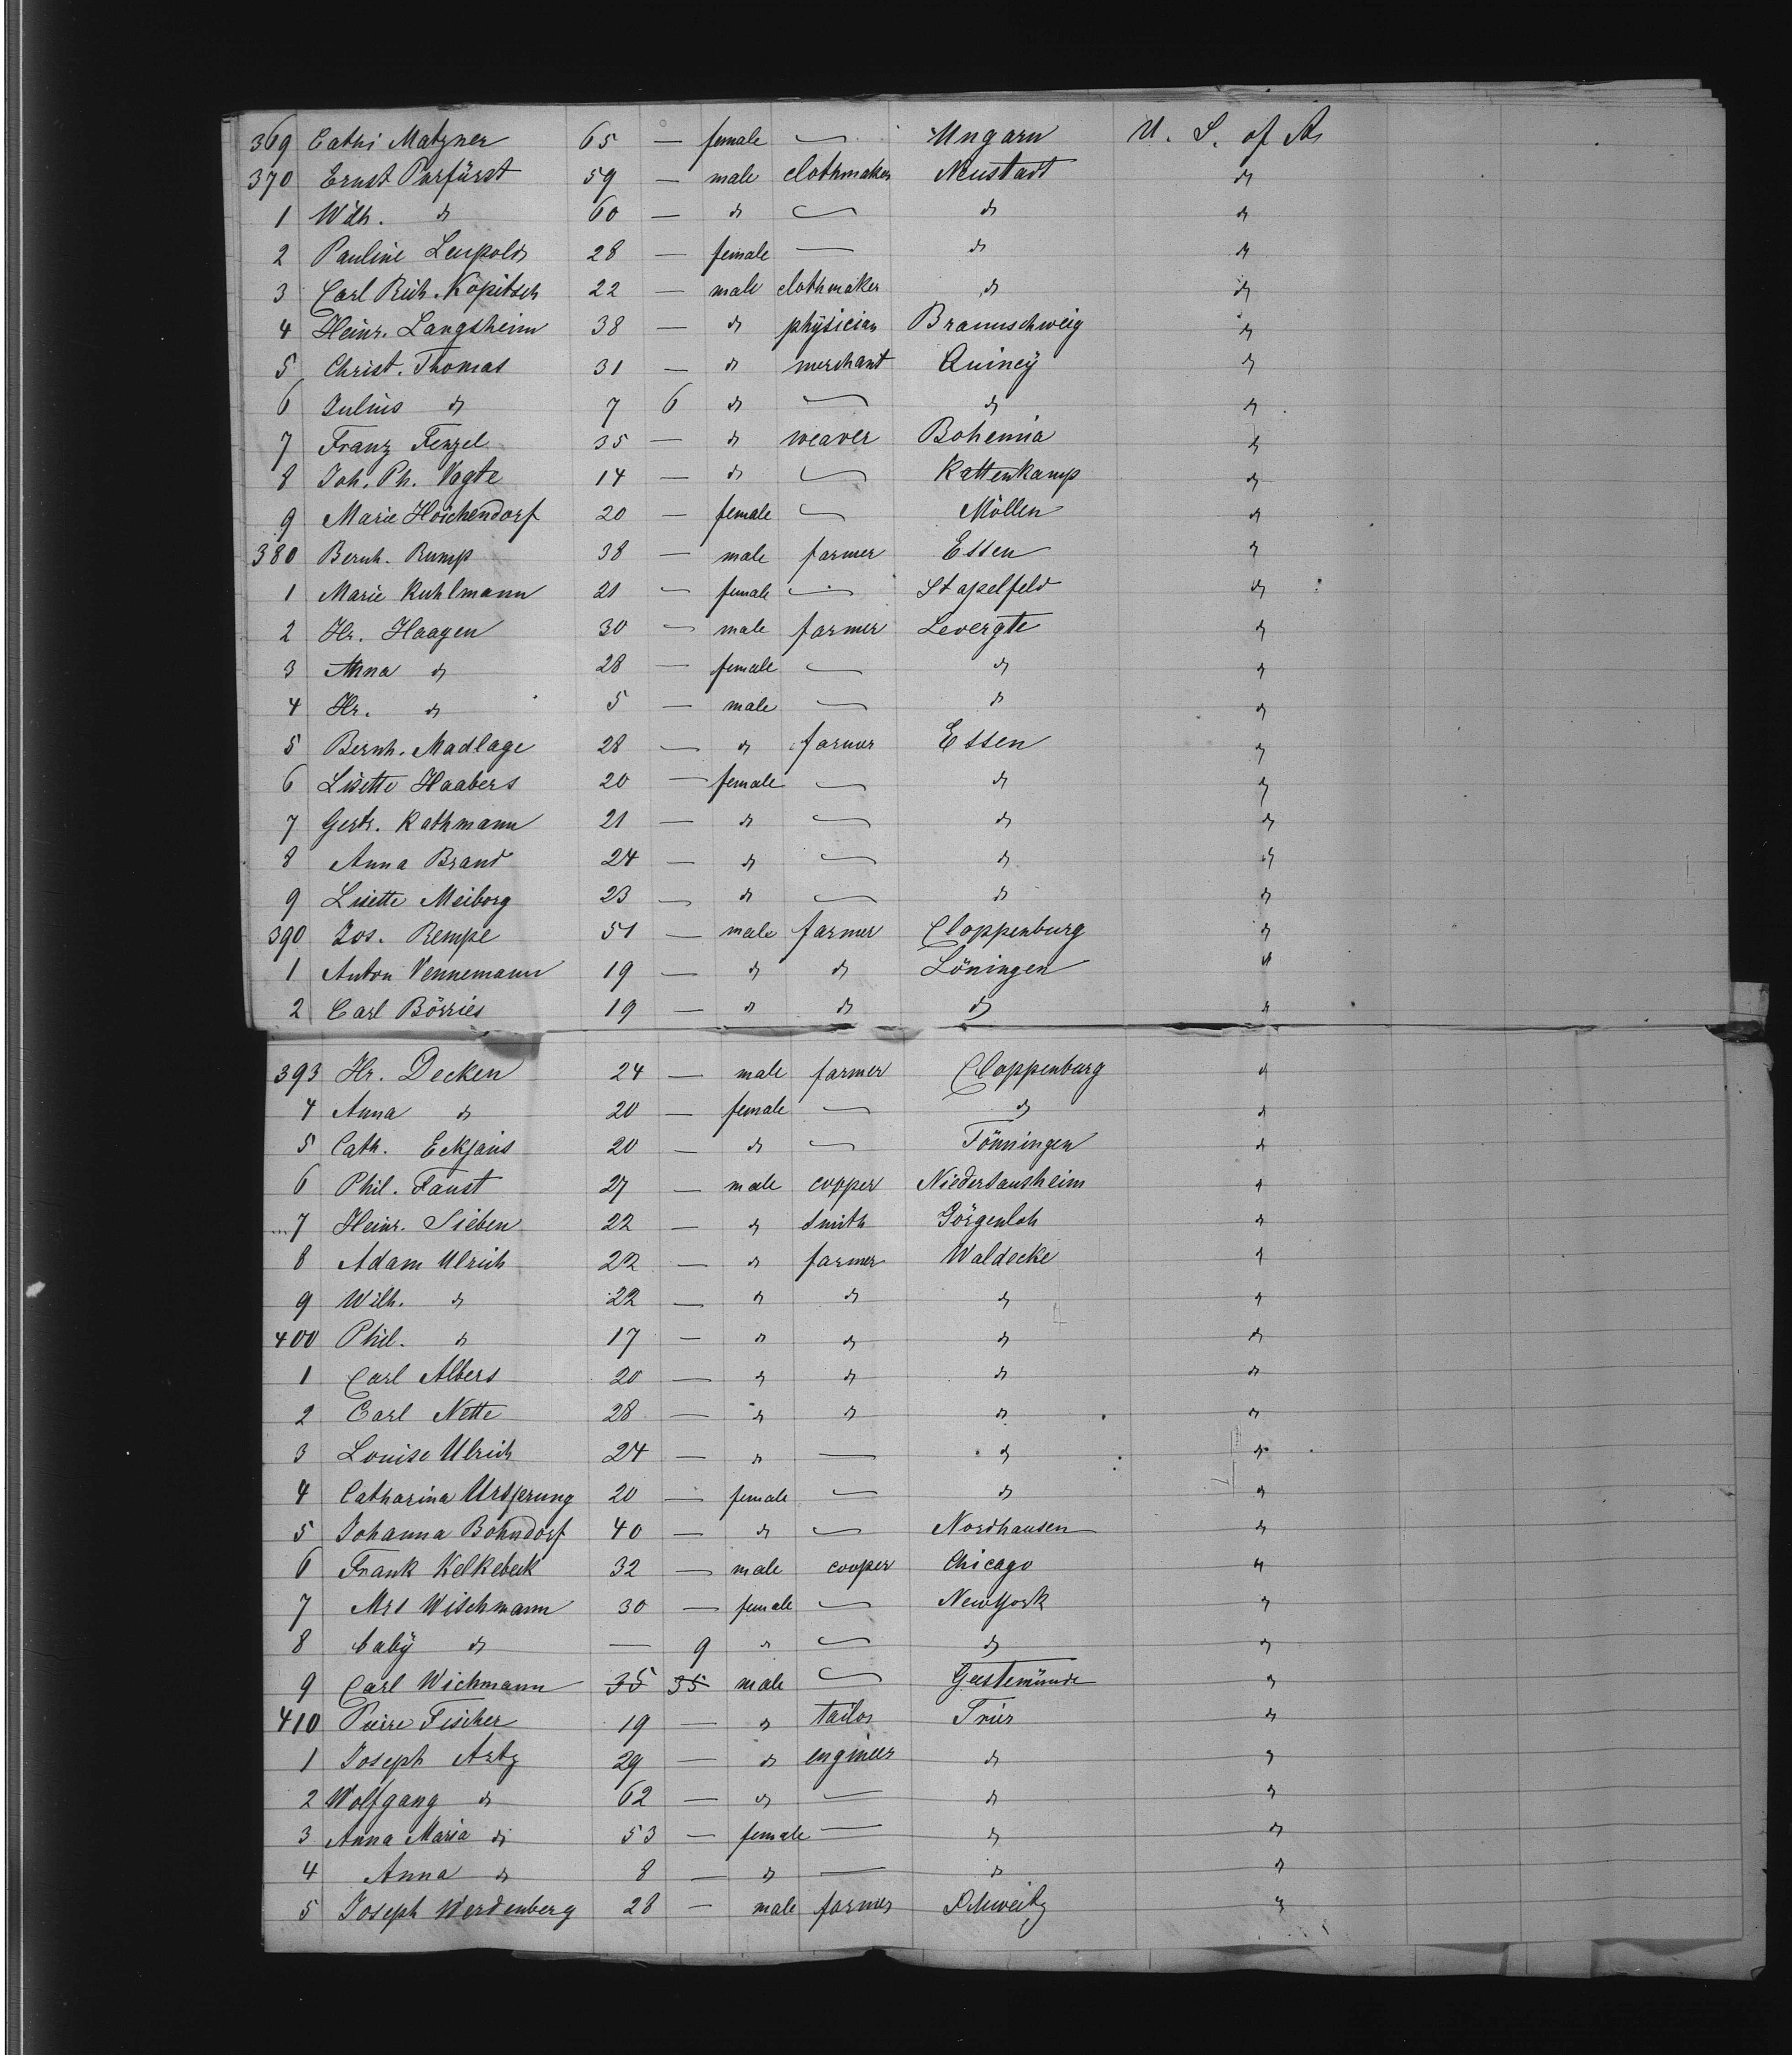 369 Cathi Matzner 65 — female — Ungarn U. S. of A.
370 Ernst Porfürst 59 — male clothmaker Neustadt do
1 Wilh. do 60 — do — do do
2 Pauline Leupold 28 — female — do do
3 Carl Rich. Kopitsch 22 — male clothmaker do do
4 Heinr. Langsheim 38 — do physician Braunschweig do
5 Christ. Thomas 31 — do merchant Quincy do
6 Julius do 7 6 do — do do
7 Franz Fenzel 35 — do weaver Bohemia do
8 Joh. Ph. Vagte 14 — do — Kattenkamp do
9 Marie Hoichendorf 20 — female — Möllen do
380 Bernh. Rump 38 — male farmer Essen do
1 Marie Kuhlmann 21 — female — Stapelfeld do
2 Hr. Haagen 30 — male farmer Levergte do
3 Anna do 28 — female — do do
4 Hr. do 5 — male — do do
5 Bernh. Madlage 28 — do farmer Essen do
6 Lisette Haabers 20 — female — do do
7 Gertr. Kathmann 21 — do — do do
8 Anna Brand 24 — do — do do
9 Lisette Meiborg 23 — do — do do
390 Jos. Rempe 51 — male farmer Cloppenburg do
1 Anton Vennemann 19 — do do Löningen do
2 Carl Börries 19 — do do do do
393 Hr. Decken 24 — male farmer Cloppenburg do
4 Anna do 20 — female — do do
5 Cath. Eckjans 20 — do — Tönningen do
6 Phil. Faust 27 — male copper Niedersausheim do
7 Heinr. Sieben 22 — do smith Görgenloh do
8 Adam Ulrich 22 — do farmer Waldecke do
9 Wilh. do 22 — do do do do
400 Phil. do 17 — do do do do
1 Carl Albers 20 — do do do do
2 Carl Nette 28 — do do do do
3 Louise Ulrich 24 — do — do do
4 Catharina Ursprung 20 — female — do do
5 Johanna Bohndorf 40 — do — Nordhausen do
6 Frank Kelkebeck 32 — male cooper Chicago do
7 Mrs Wischmann 30 — female — New York do
8 baby do — 9 do — do do
9 Carl Wichmann 35 35 male — Geestemünde do
410 Peire Fischer 19 — do tailor Trier do
1 Joseph Artz 29 — do engineer do do
2 Wolfgang do 62 — do — do do
3 Anna Maria do 53 — female — do do
4 Anna do 8 — do — do do
5 Joseph Werdenberg 28 — male farmer Schweitz do